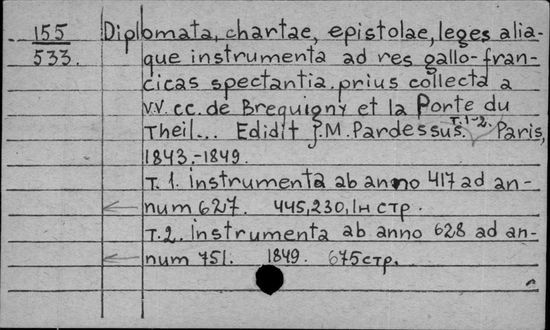 155
533.
Diplomata, chartae, epistolae, leges alia-
que instrumenta ad res gallo-fran-
cicas spectantia. prius collecta a
V.V. cc. de Brequigny et la Ponte du
Theil... Edidit J.M. Pardessus. т.1-2. Paris,
1843.-1849.
т. 1. instrumenta ab anno 417 ad an-
num 627. 445,230,1н стр.
т.2. instrumenta ab anno 628 ad an-
num 751. 1849. 675стр.